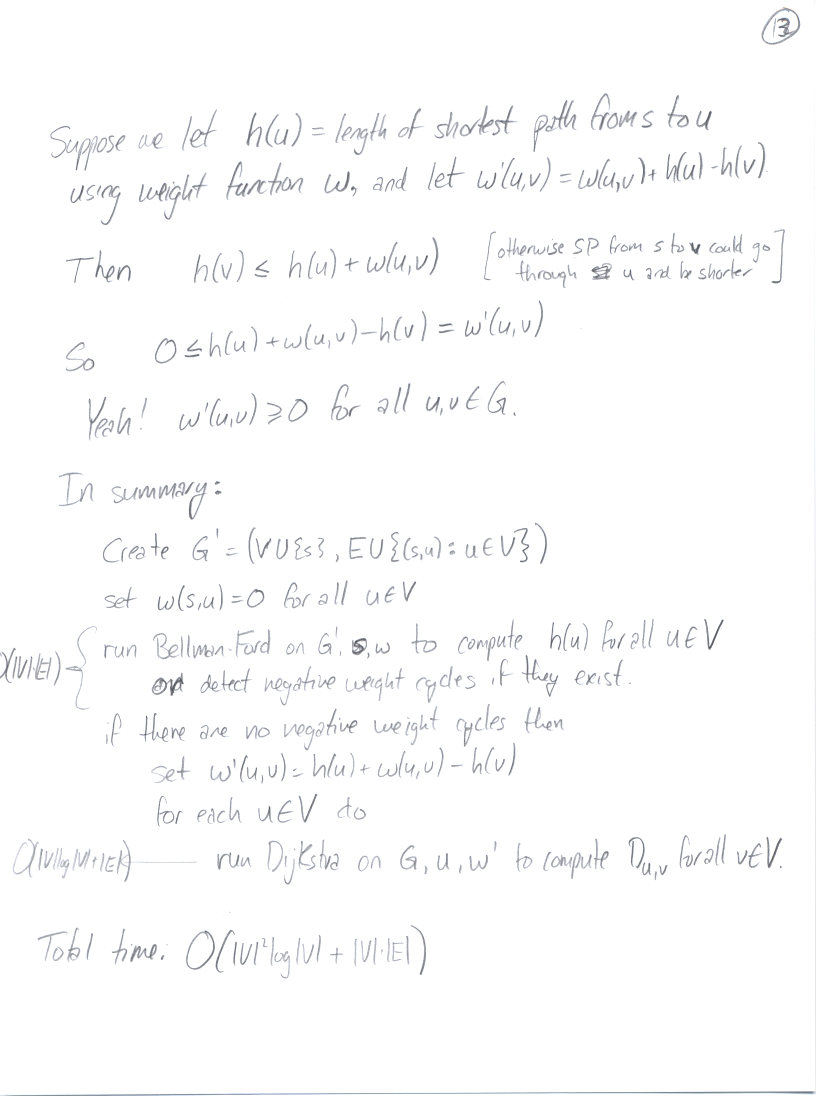 13
Suppose we let h(u) = length of shortest path from s to u
using weight function w, and let w'(u,v) = w(u,v) + h(u) - h(v)
Then h(v) ≤ h(u) + w(u,v) [otherwise SP from s to v could go
through u and be shorter]
So 0 ≤ h(u) + w(u,v) - h(v) = w'(u,v)
Yeah! w'(u,v) ⩾ 0 for all u,v ∈ G.
In summary:
Create G' = (V ∪ {s}, E ∪ {(s,u) : u ∈ V})
set w(s,u) = 0 for all u ∈ V
O(|V|·|E|) { run Bellman-Ford on G', s, w to compute h(u) for all u ∈ V
or detect negative weight cycles if they exist.
if there are no negative weight cycles then
set w'(u,v) = h(u) + w(u,v) - h(v)
for each u ∈ V do
O(|V|log|V|+|E|) — run Dijkstra on G, u, w' to compute D_{u,v} for all v ∈ V.
Total time: O(|V|² log|V| + |V|·|E|)